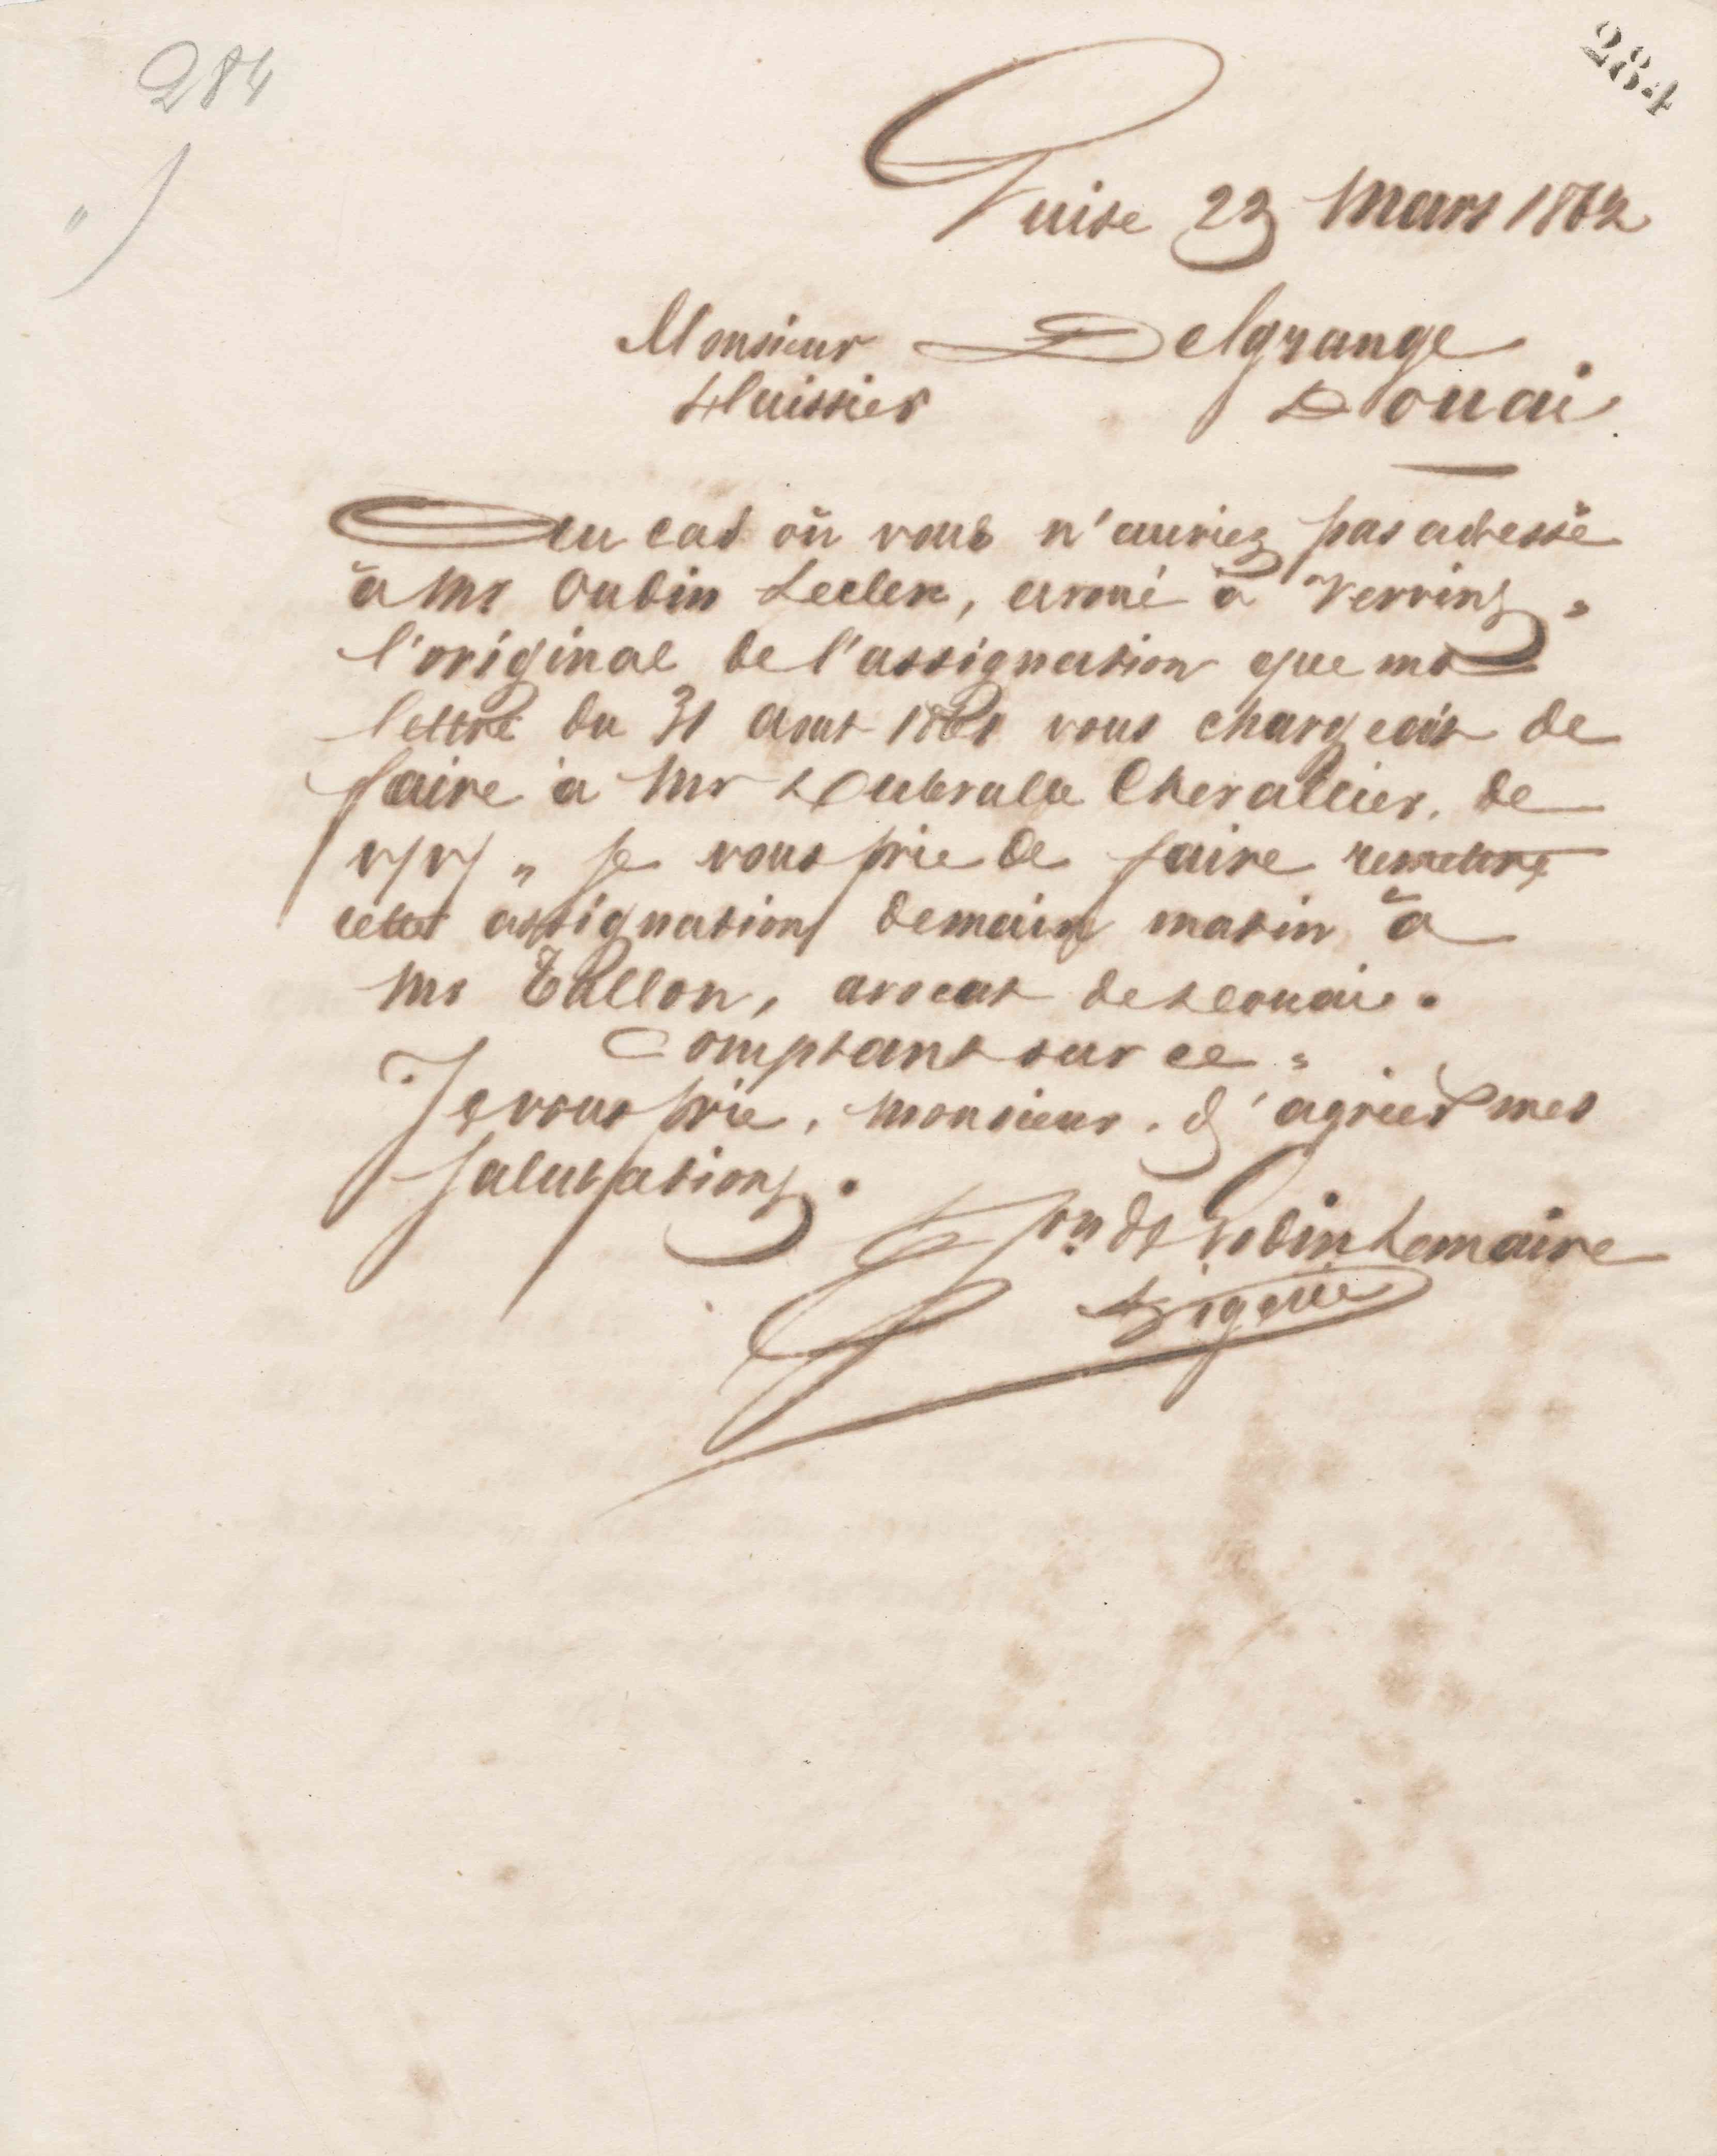 284
284
"
Guise 23 Mars 1862
Monsieur Delgrange
Huissier Douai
Au cas où vous n'auriez pas adressé
à Mr Oubin Leclerc, avoué à Vervins,
l'original de l'assignation que ma
lettre du 31 aout 1861 vous chargeait de
faire à Mr Dubrulle Chevallier, de
v/v/ " je vous prie de faire remettre
cette assignation demain matin à
Mr Tallon, avocat de Douai.
Comptant sur ce "
Je vous prie, monsieur, d'agréer mes
salutations.
pon de Godin Lemaire